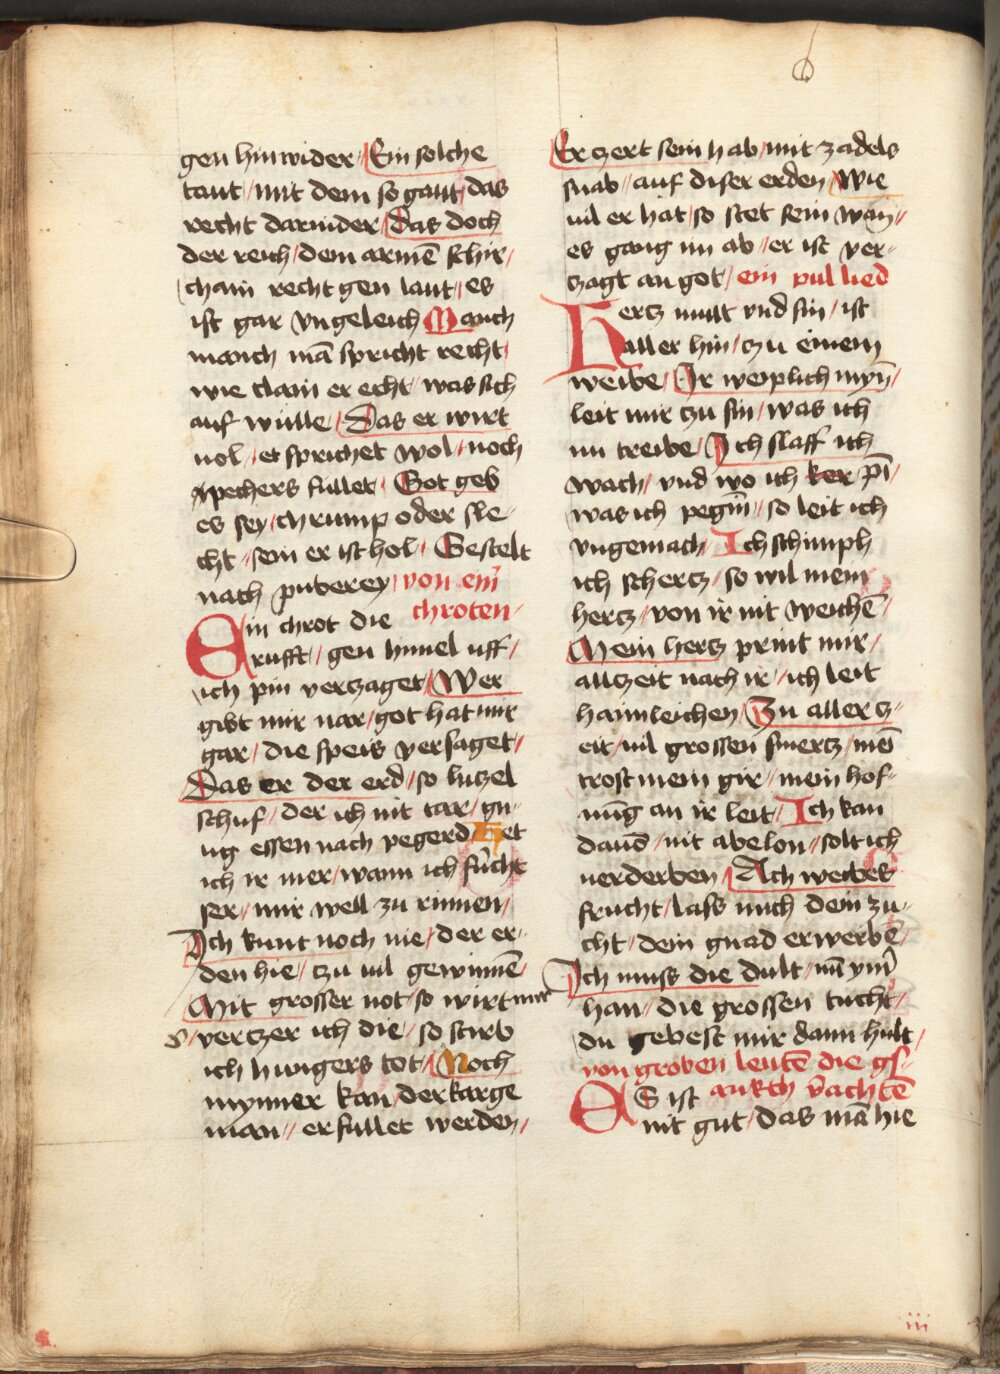 gen hinwider / Ein solche
taut / mit dem so gaut / das
recht darnider / Das doch
der reich / dem armē schir /
chain recht gen laut / es
ist gar vngeleich Manch
manch mā spricht recht /
wie clain er echt / was sich
auf wulle / Das er wirt
uol / er sprichet wol / noch
pechers fullet / Got geb
es sey / chrump oder sle-
cht / sem er ist hol / Gestelt
nach puberey / von eim
chroten /
Ein chrot die
rufft / gen himel uff /
ich pin verczaget / Wer
gibt mir nar / got hat mir
gar / die speis versaget /
Das er der erd / so luczel
schuf / der ich nit tar / gn-
ug essen nach pegerd Het
ich ir mer / wann ich fücht
ser / mir well zu rinnen /
Ich kunt noch nie / der er-
den hie / czu uil gewinnē /
Mit grosser not / so wirt mir
verczer ich die / so stirb
ich hungers tot / Noch
mynner kan / der karge
man / erfullet werden /
Er czert sein hab / mit zadels
snab / auf diser erden / Wie
uil er hat / so stet sein wan /
es gang im ab / er ist ver-
czagt an got / ein pul lied
Hercz mutt vnd sin / ist
aller hin / czu einem
weibe / Ir weiplich myn̄ /
leit mir czu sin / was ich
nu treibe / Ich slaff ich
wach / vnd wo ich ker pī /
was ich pegin̄ / so leit ich
vngemach / Ich schimph
ich schercz / so wil mein
hercz / von ir nit weichē /
Mein hercz print mir /
allczeit nach ir / ich leit
haimleichen / Zu aller cz-
eit / uil grossen smercz / mei
trost mein gir / mein hof-
nūg an ir leit / Ich kan
dauō / nit abelon / solt ich
uerderben / Ach weibes
frucht / lass mich dein zu-
cht / dein gnad erwerbē /
Ich muss die dult / ym̄
han / die grossen tucht /
du gebest mir dann hult /
von groben leutē die gs-
angkh vachtē
ES ist
nit gut / das mā hie
iii